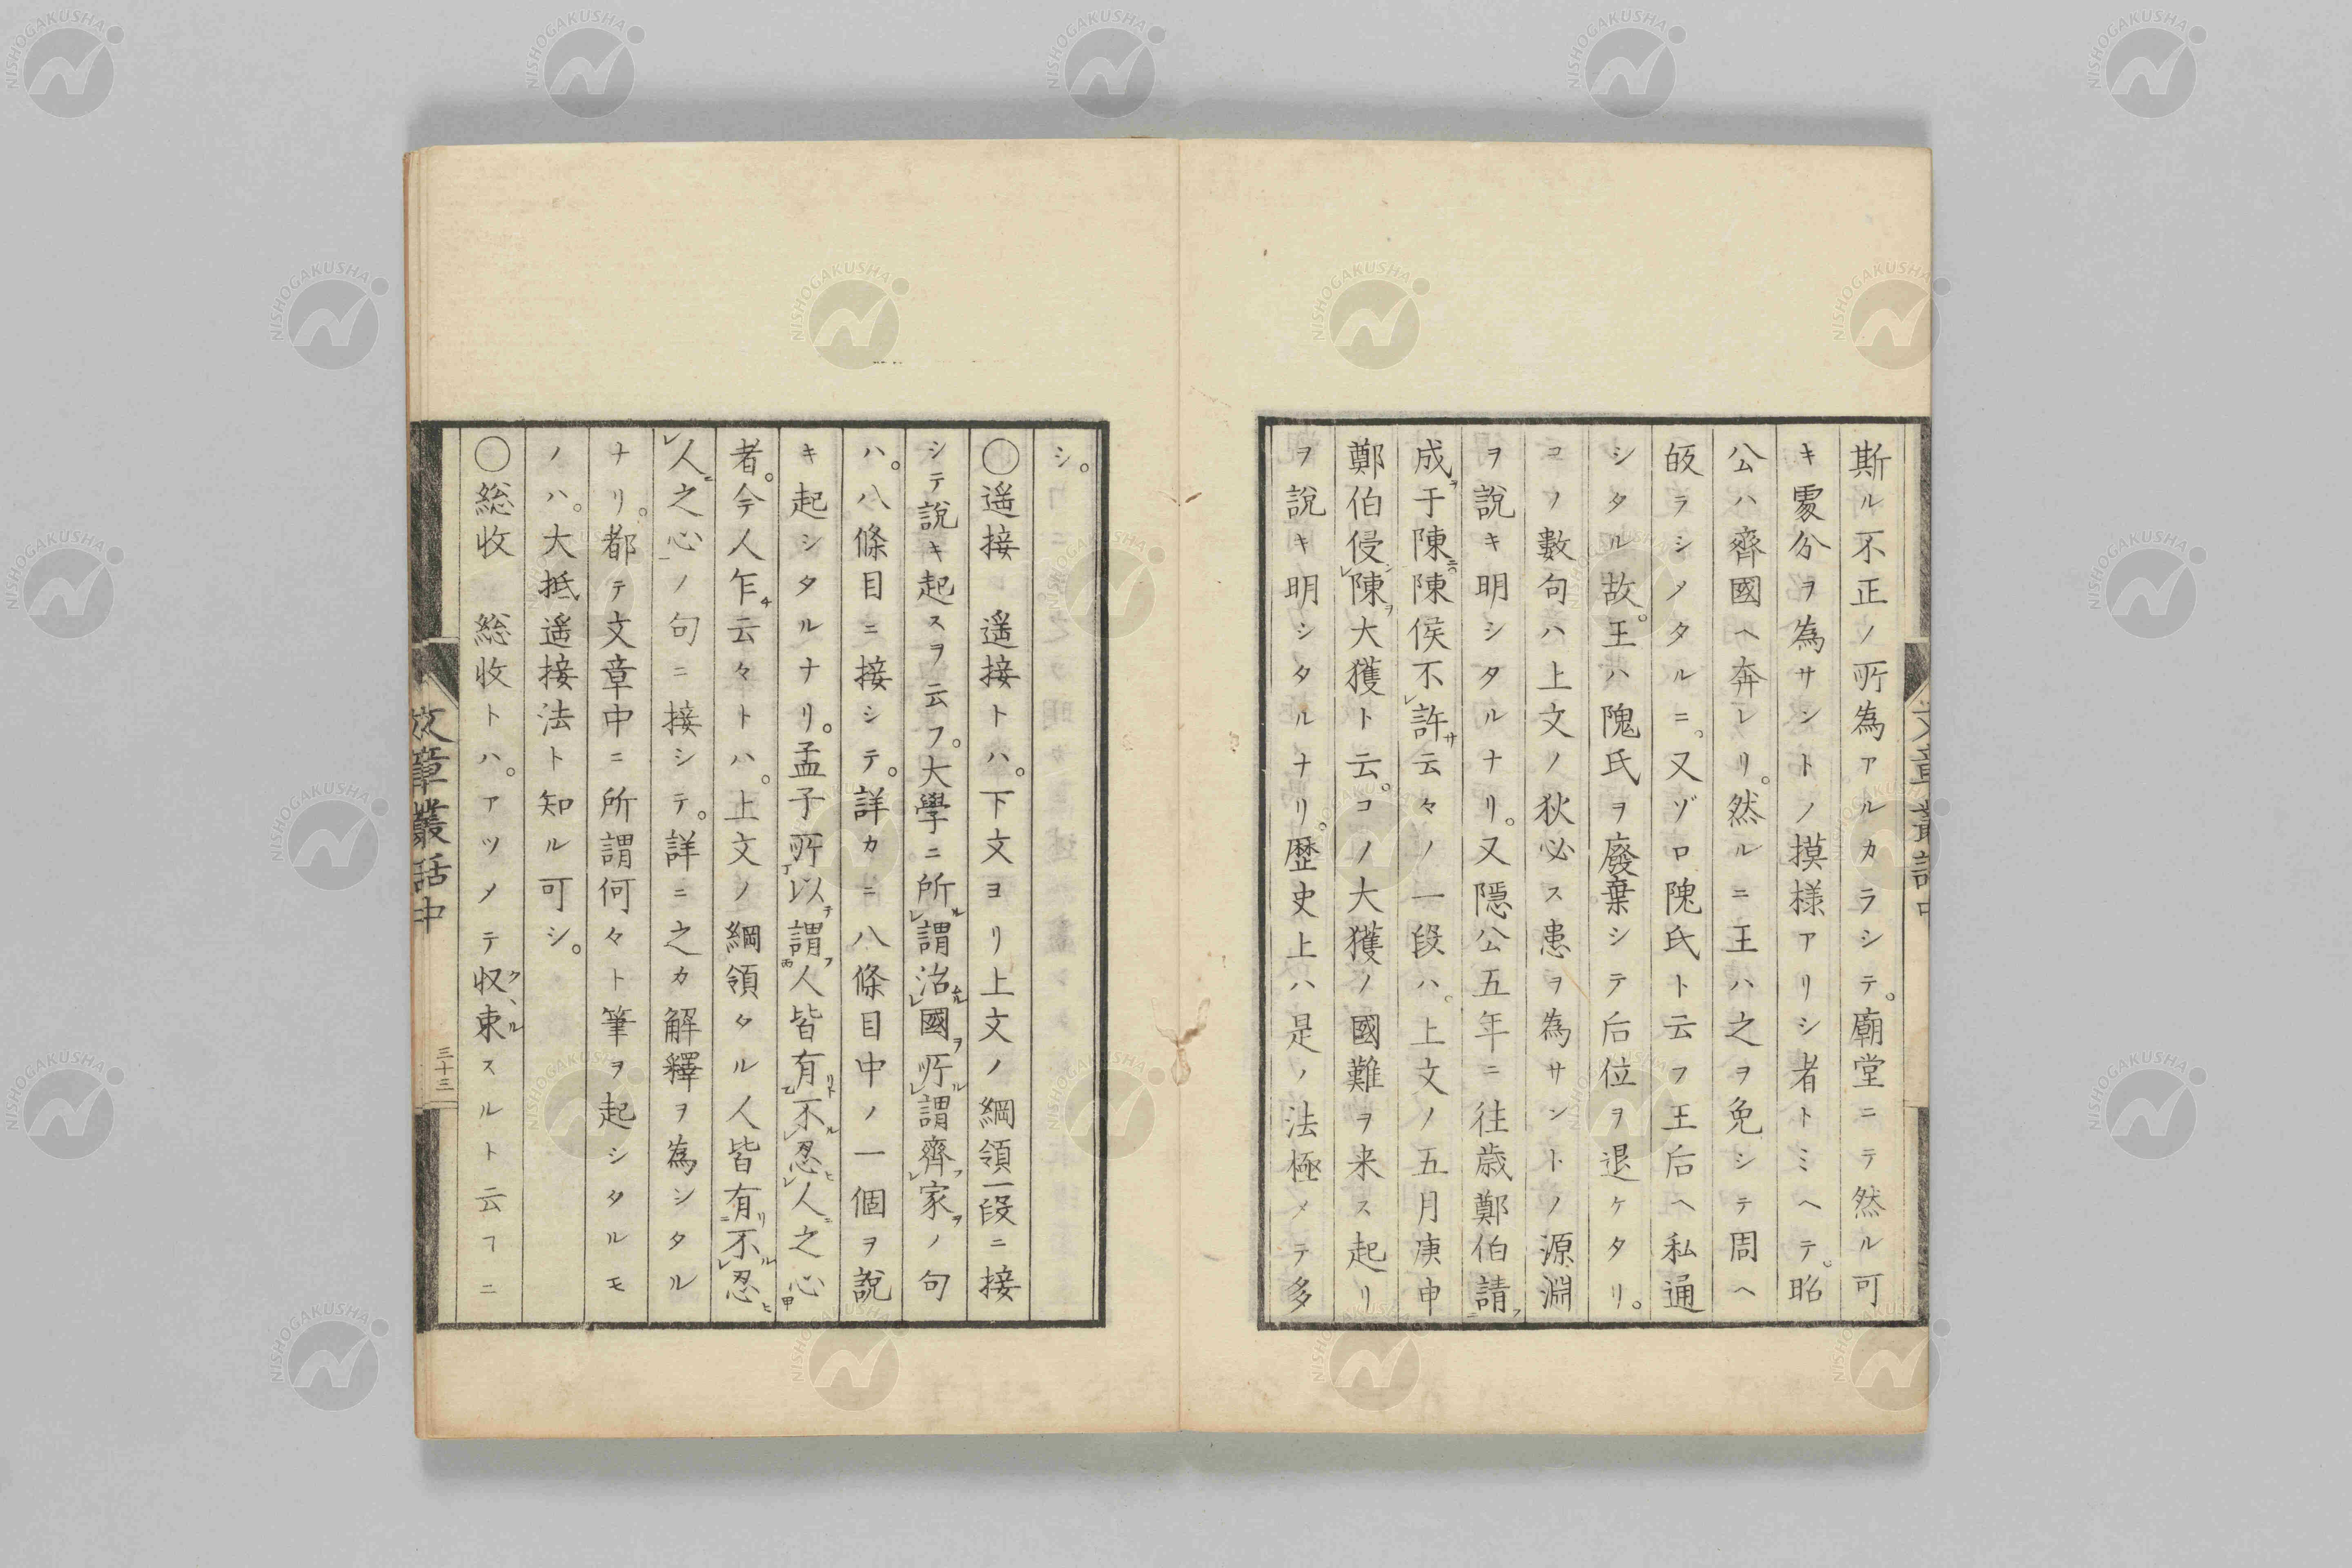 斯ル不正ノ所為アルカラシテ。廟堂ニテ然ル可
キ處分ヲ為サントノ摸樣アリシ者トミヘテ。昭
公ハ齊國ヘ奔レリ。然ルニ王ハ之ヲ免シテ周ヘ
皈ラシメタルニ。又ゾロ隗氏ト云フ王后ヘ私通
シタル故。王ハ隗氏ヲ廢棄シテ后位ヲ退ケタリ。
コノ數句ハ上文ノ狄必ス患ヲ為サントノ源淵
ヲ說キ明シタルナリ。又隱公五年ニ往歳鄭伯請
成于陳陳侯不許云々ノ一段ハ。上文ノ五月庚申
鄭伯侵陳大獲ト云。コノ大獲ノ國難ヲ来ス起リ
ヲ說キ明シタルナリ。歷史上ハ是ノ法極メテ多
シ。
〇遥接 遥接トハ。下文ヨリ上文ノ綱領一段ニ接
シテ說キ起スヲ云フ。大學ニ所謂治國所謂齊家ノ句
ハ。八條目ニ接シテ。詳カニ八條目中ノ一個ヲ說
キ起シタルナリ。孟子所以謂人皆有不忍人之心
者。今人乍云々トハ。上文ノ綱領タル人皆有不忍
人之心ノ句ニ接シテ。詳ニ之カ解釋ヲ為シタル
ナリ。都テ文章中ニ所謂何々ト筆ヲ起シタルモ
ノハ。大抵遥接法ト知ル可シ。
〇総收 総收トハ。アツメテ収束スルト云フニ
文章叢話中
三十三
NISHOGAKUSHA